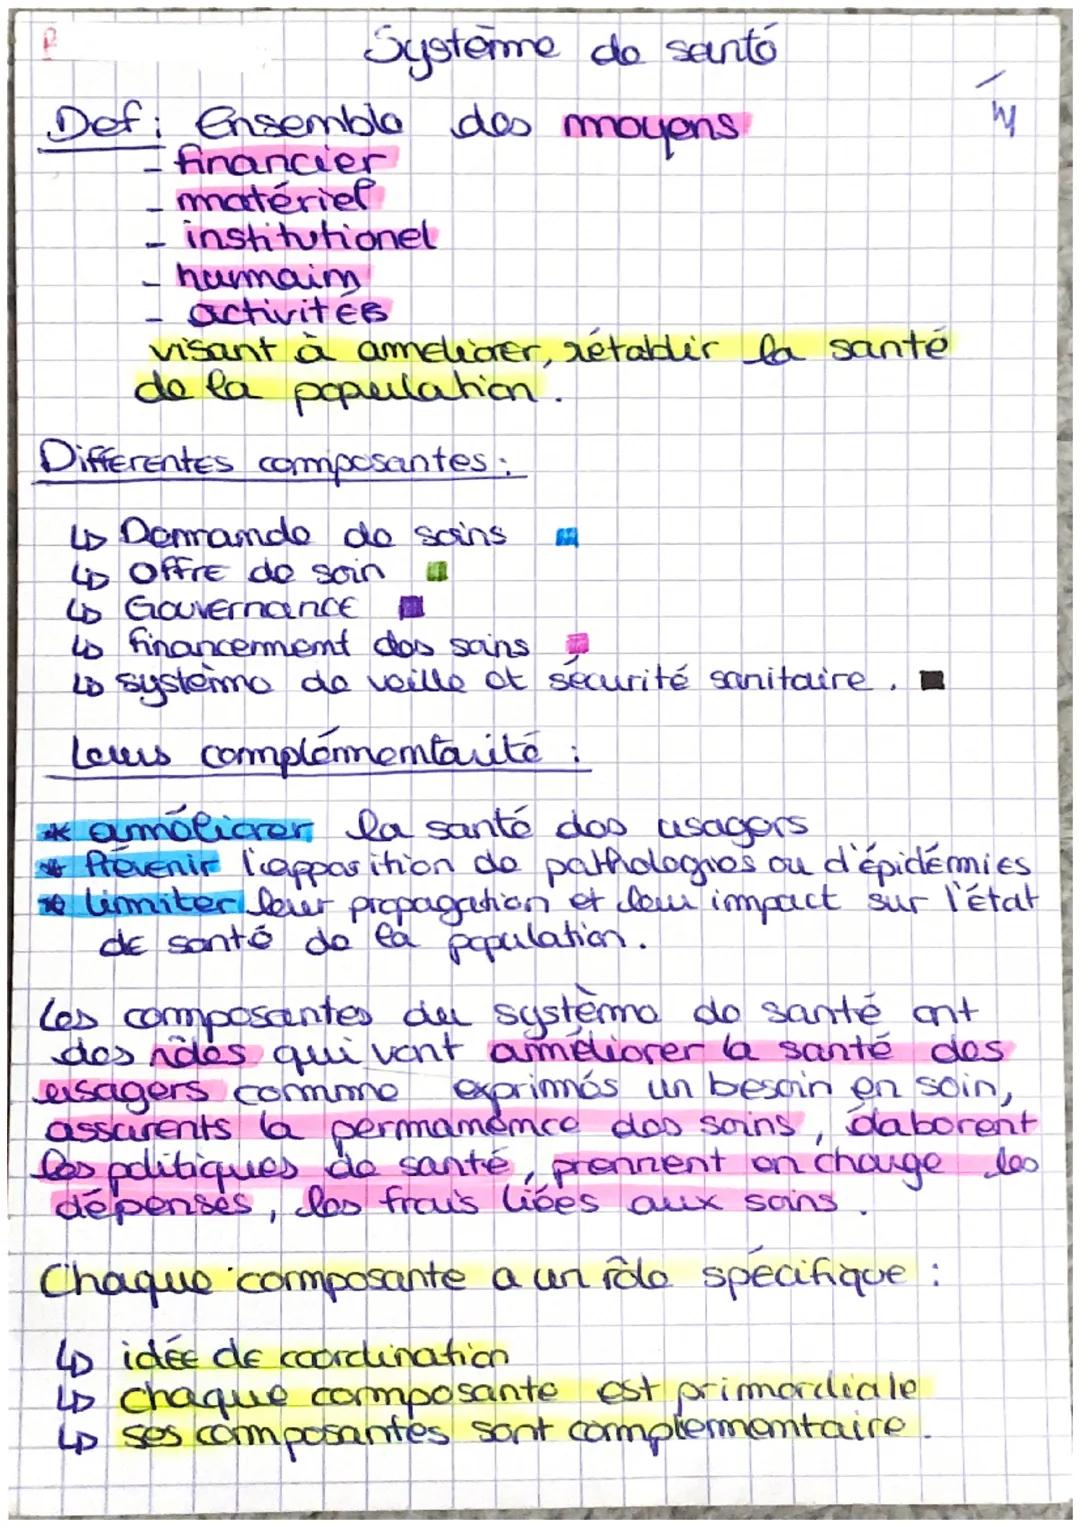 Système de santé
Def : Ensemble des moyens
- financier
- matériel
- institutionel
- humain
- activités
visant à ameliorer, rétablir la santé
de la population.
Differentes composantes :
↳ Demande de soins
↳ Offre de soin
↳ Gouvernance
↳ financement des soins
↳ système de veille et sécurité sanitaire.
Leurs complémentarité :
* améliorer la santé des usagers
* Prévenir l'apparition de pathologies ou d'épidémies
* Limiter leur propagation et leur impact sur l'état
de santé de la population.
Les composantes du système de santé ont
des rôles qui vont améliorer la santé des
usagers comme exprimés un besoin en soin,
assurents la permanence des soins, élaborent
les politiques de santé, prennent en charge les
dépenses, les frais liées aux soins.
Chaque composante a un rôle spécifique :
↳ idée de coordination
↳ chaque composante est primordiale
↳ ses composantes sont complementaire.